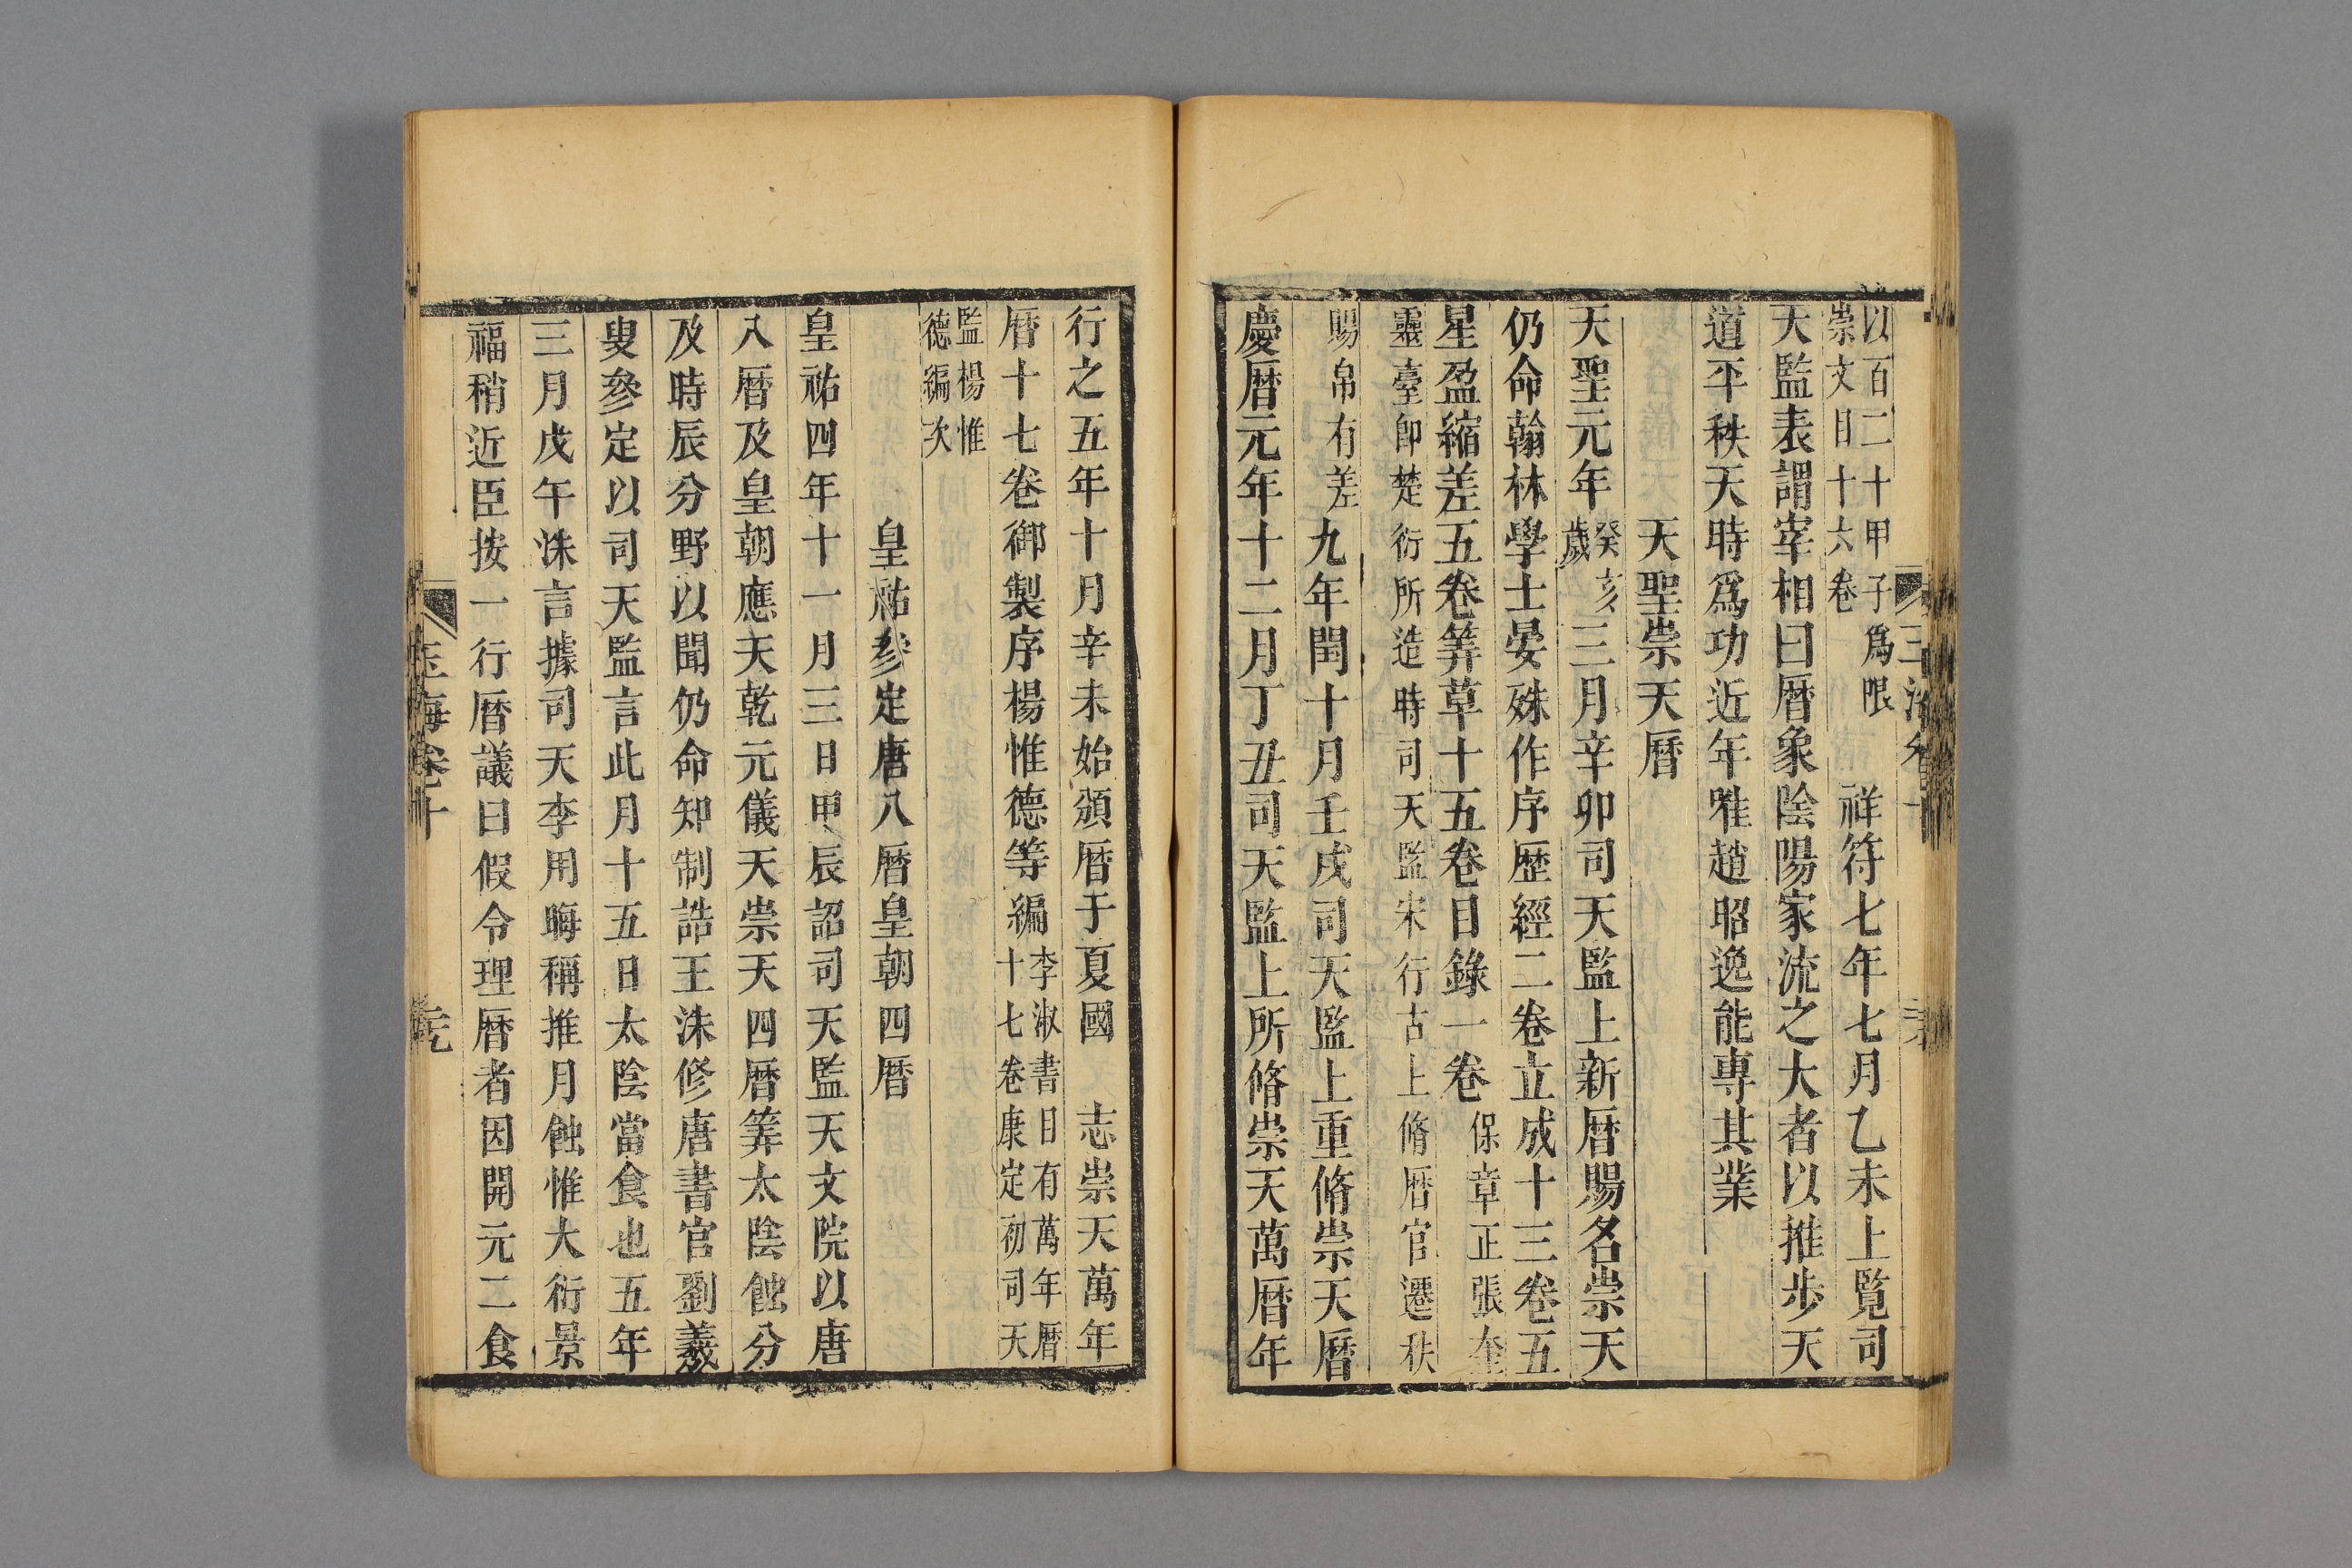 以百二十甲子爲限
崇文目十六卷
祥符七年七月乙未上覧司
天監表謂宰相曰曆象陰陽家流之大者以推步天
道平秩天時爲功近年唯趙昭逸能專其業
天聖崇天曆
天聖元年
癸亥
歲
三月辛卯司天監上新曆賜名崇天
仍命翰林學士晏殊作序歴經二卷立成十三卷五
星盈縮差五卷筭草十五卷目錄一卷
保章正張奎
靈臺郎楚衍所造時司天監宋行古上脩曆官遷秩
賜帛有差
九年閏十月壬戌司天監上重脩崇天曆
慶曆元年十二月丁丑司天監上所脩崇天萬曆年
行之五年十月辛未始頒曆于夏國
志崇天萬年
曆十七卷御製序楊惟德等編
李淑書目有萬年曆
十七卷康定初司天
監楊惟
德編次
皇祐參定唐八曆皇朝四曆
皇祐四年十一月三日甲辰詔司天監天文院以唐
八曆及皇朝應天乾元儀天崇天四曆筭太陰蝕分
及時辰分野以聞仍命知制誥王洙修唐書官劉羲
叟參定以司天監言此月十五日太陰當食也五年
三月戊午洙言據司天李用晦稱推月蝕惟大衍景
福稍近臣按一行曆議曰假令理曆者因開元二食
玉海卷十